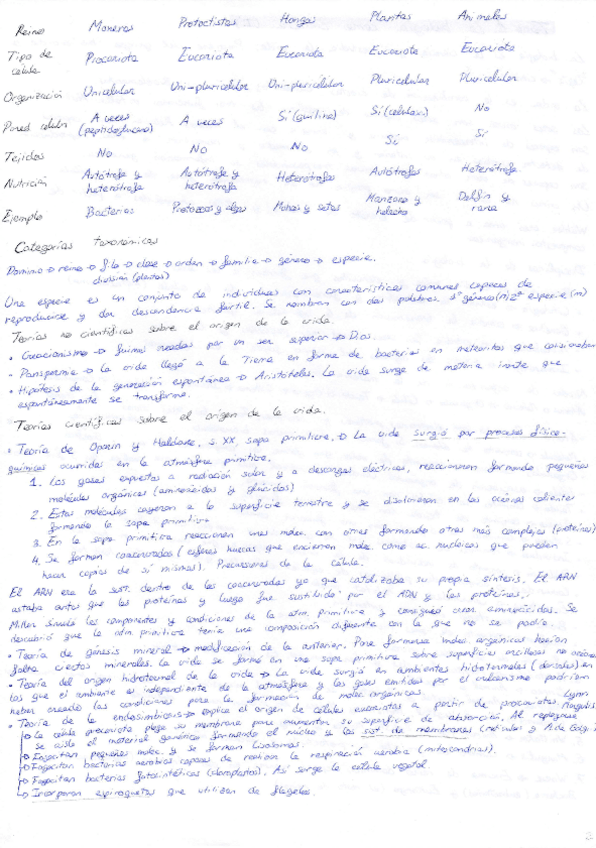 Reino Moneras Protoctistas Hongos Plantas Animales
Tipo de célula Procariota Eucariota Eucariota Eucariota Eucariota
Organización Unicelular Uni-pluricelular Uni-pluricelular Pluricelular Pluricelular
Pared celular A veces (peptidoglucano) A veces Sí (quitina) Sí (celulosa) No
Tejidos No No No Sí Sí
Nutrición Autótrofa y heterótrofa Autótrofa y heterótrofa Heterótrofa Autótrofa Heterótrofa
Ejemplo Bacterias Protozoos y algas Mohos y setas Manzano y helecho Delfín y rana
Categorías taxonómicas
Dominio → reino → filo → clase → orden → familia → género → especie.
división (plantas)
Una especie es un conjunto de individuos con características comunes capaces de
reproducirse y dar descendencia fértil. Se nombran con dos palabras 1º género (M) 2º especie (m)
Teorías no científicas sobre el origen de la vida.
• Creacionismo → fuimos creados por un ser superior → Dios.
• Panspermia → La vida llegó a la Tierra en forma de bacterias en meteoritos que
• Hipótesis de la generación espontánea → Aristóteles. La vida surge de materia inerte que
espontáneamente se transforma.
Teorías científicas sobre el origen de la vida.
• Teoría de Oparin y Haldane. s. XX, sopa primitiva. → La vida surgió por procesos físico-
químicos ocurridos en la atmósfera primitiva.
1. Los gases expuestos a radiación solar y a descargas eléctricas, reaccionaron formando pequeñas
moléculas orgánicas (aminoácidos y glúcidos)
2. Estas moléculas cayeron a la superficie terrestre y se disolvieron en los océanos calientes
formando la sopa primitiva
3. En la sopa primitiva reaccionan unas moléc. con otras formando otras más complejas (proteínas)
4. Se forman coacervados (esferas huecas que encierran moléc. como ac. nucleicos que pueden
hacer copias de sí mismas). Precursores de la célula.
El ARN era la sust. dentro de los coacervados ya que catalizaba su propia síntesis. El ARN
estaba antes que las proteínas y luego fue sustituido por el ADN y las proteínas.
Miller simuló los componentes y condiciones de la atm. primitiva y consiguió crear aminoácidos. Se
descubrió que la atm. primitiva tenía una composición diferente con la que no se podía.
• Teoría de génesis mineral → modificación de la anterior. Para formarse moléc. orgánicas hacían
falta ciertos minerales. La vida se formó en una sopa primitiva sobre superficies arcillosas no
• Teoría del origen hidrotermal de la vida → La vida surgió en ambientes hidrotermales (dorsales) en
los que el ambiente es independiente de la atmósfera y los gases emitidos por el vulcanismo podrían
haber creado las condiciones para la formación de moléc. orgánicas.
• Teoría de la endosimbiosis → Explica el origen de células eucariotas a partir de procariotas. Lynn Margulis
→ La célula procariota pliega su membrana para aumentar su superficie de absorción. Al replegarse
se aísla el material genético formando el núcleo y los sist. de membranas (retículos y A. de Golgi)
→ Fagocitan pequeñas moléc. y se forman lisosomas.
→ Fagocitan bacterias aerobias capaces de realizar la respiración aerobia (mitocondrias).
→ Fagocitan bacterias fotosintéticas (cloroplastos). Así surge la célula vegetal.
→ Incorporan espiroquetas que utilizan de flagelos.